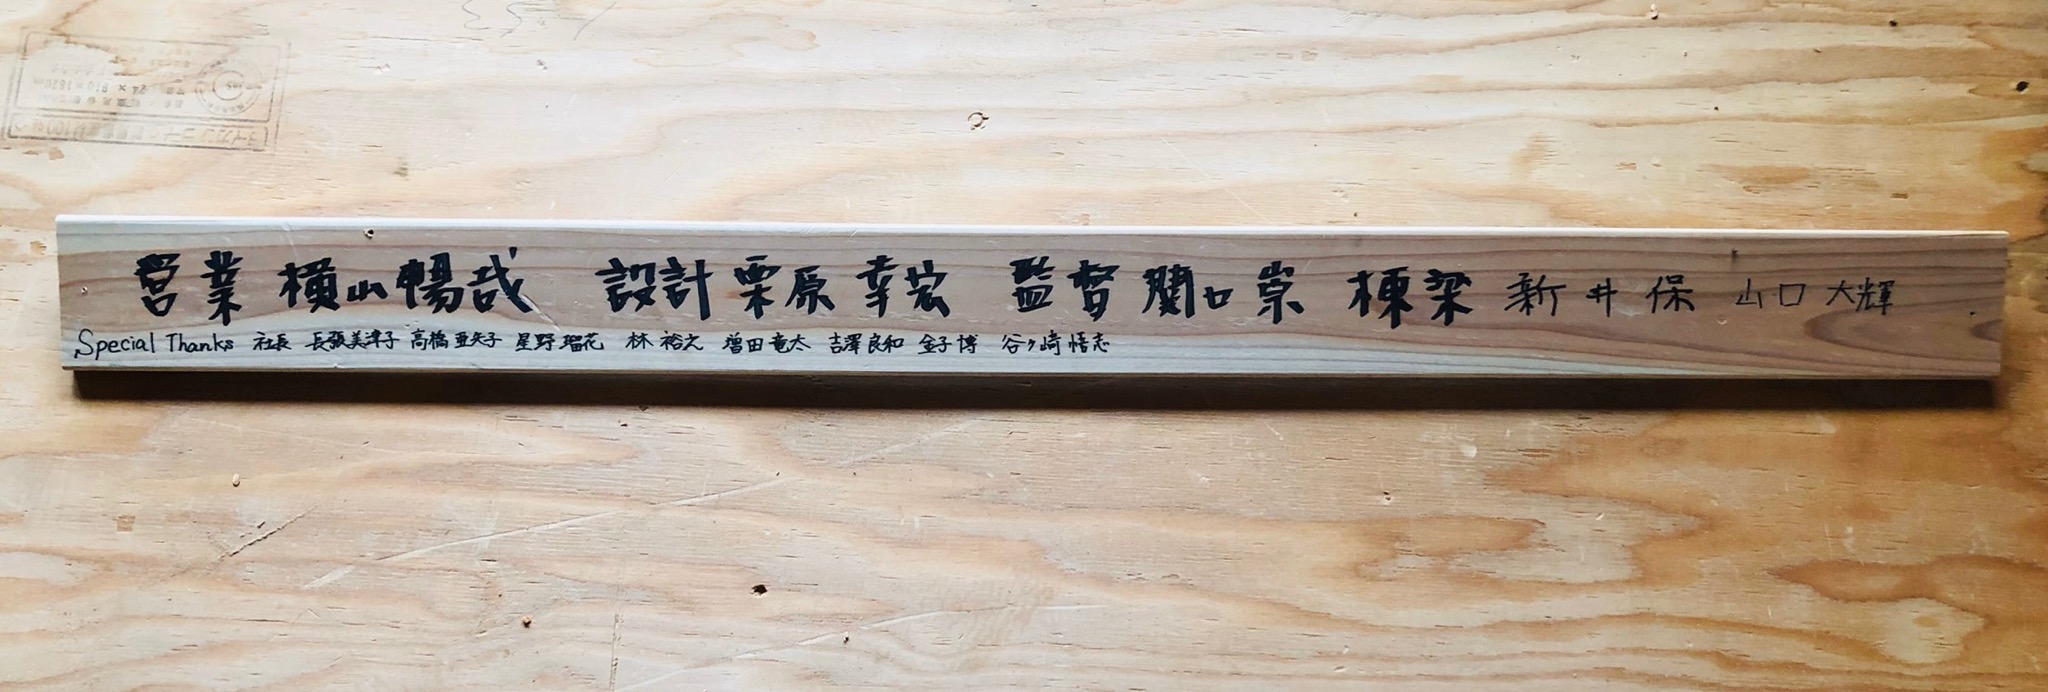 営業 横山暢哉 設計 栗原幸宏 監督 関口崇 棟梁 新井保 山口大輝
Special Thanks 社長 長張美津子 高橋亜矢子 星野瑠花 林裕之 増田竜太 吉澤良和 金子博 谷ヶ崎悟志